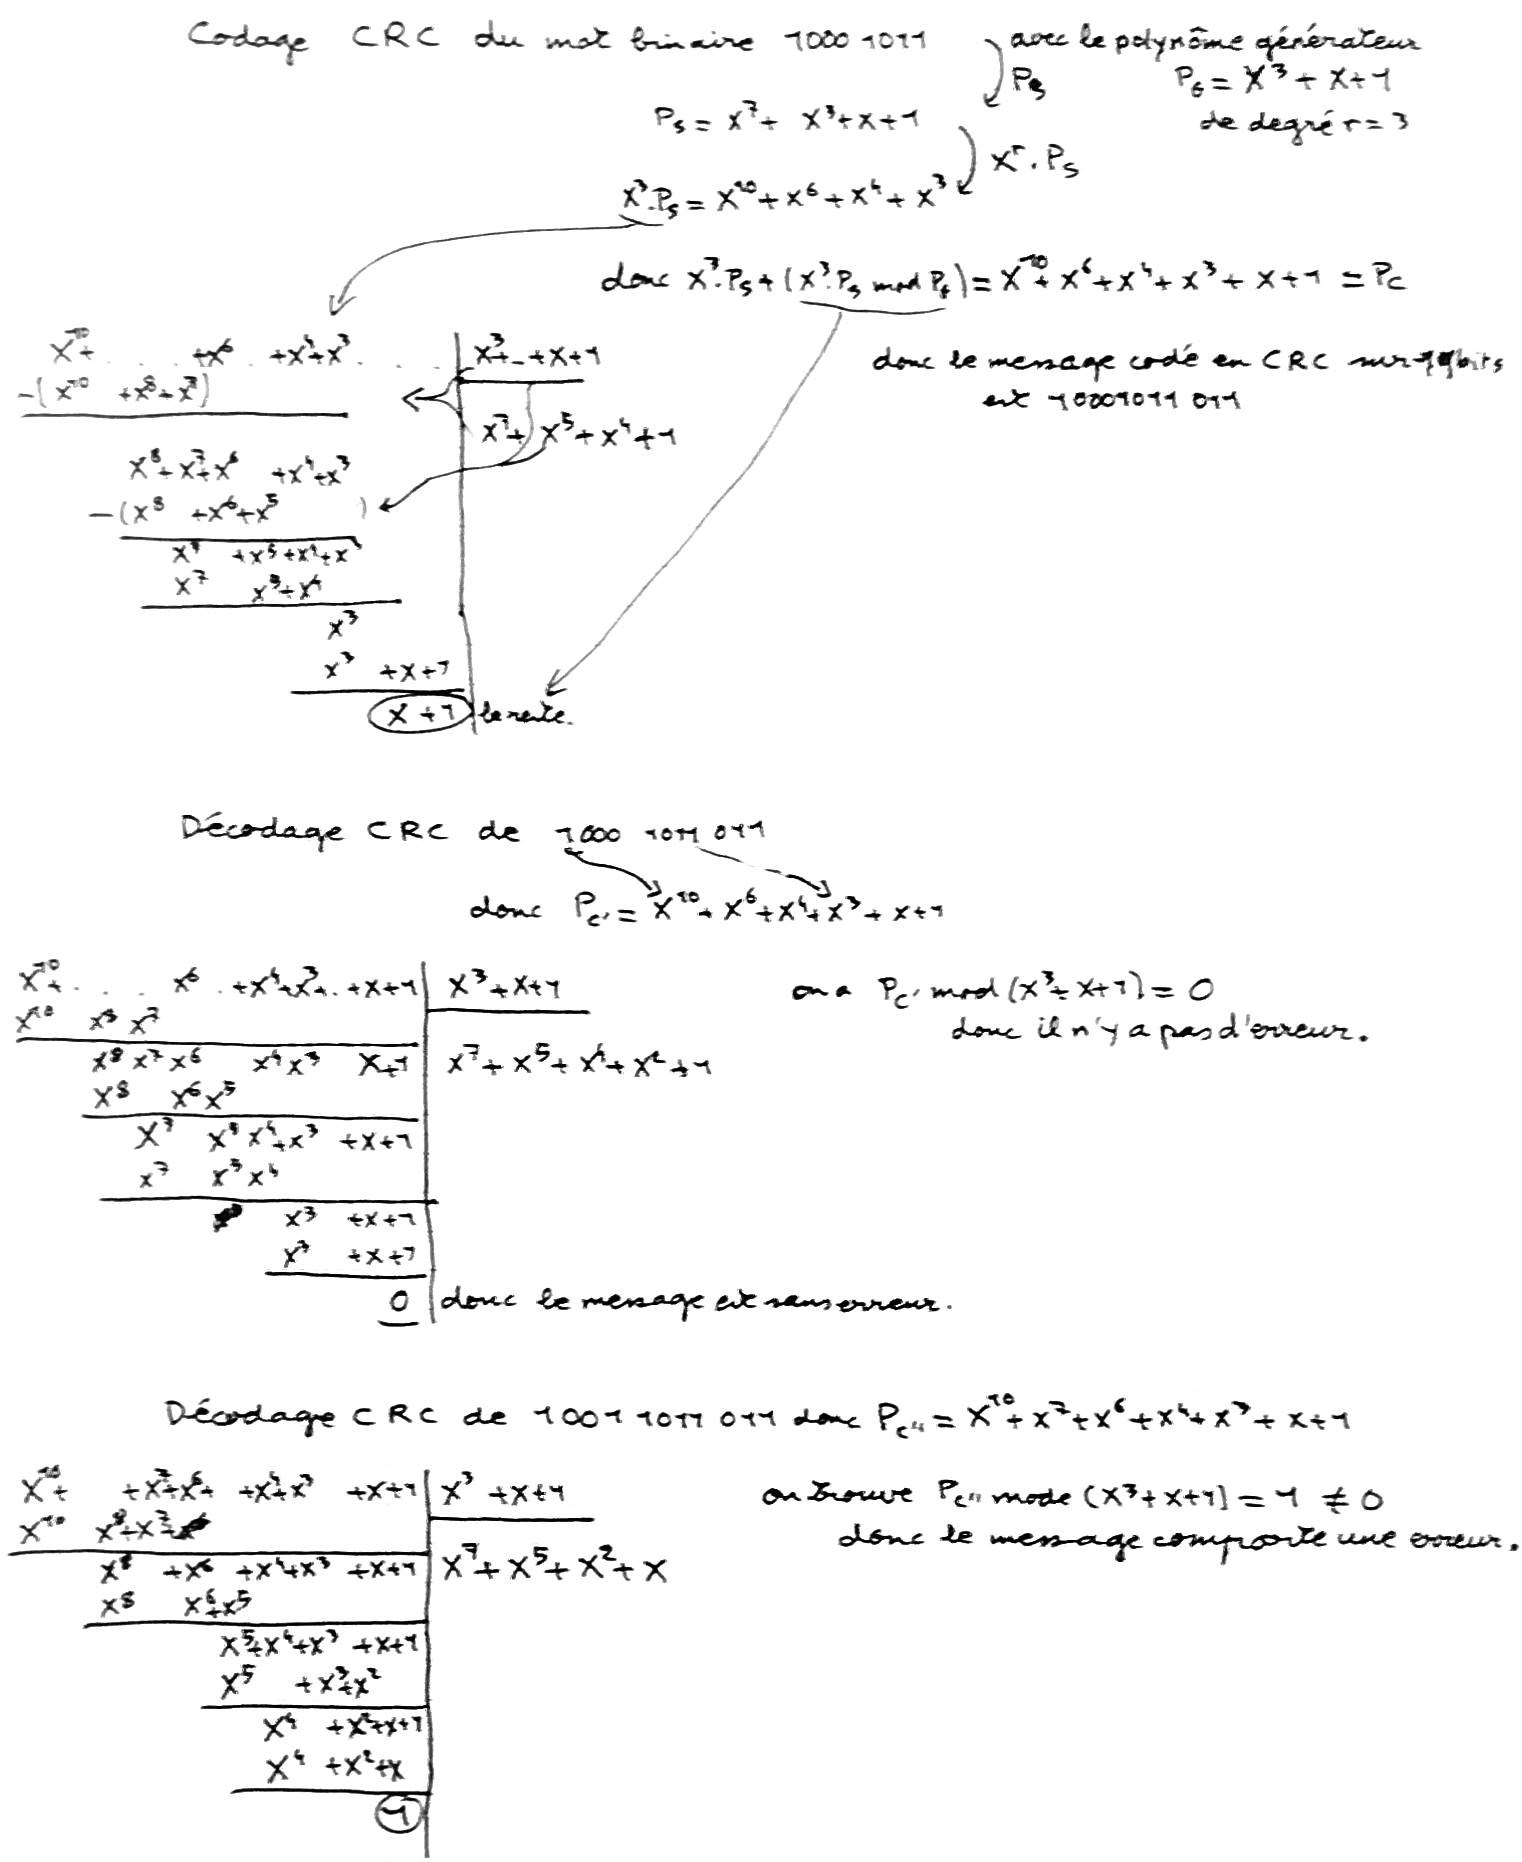 Codage CRC du mot binaire 1000 1011 avec le polynôme générateur
P_G = X³ + X + 1
de degré r = 3
P_S
P_S = X⁷ + X³ + X + 1
X^r . P_S
X³.P_S = X¹⁰ + X⁶ + X⁴ + X³
donc X³.P_S + (X³.P_S mod P_G) = X¹⁰ + X⁶ + X⁴ + X³ + X + 1 = P_C
donc le message codé en CRC sur 11 bits
est 10001011 011
X¹⁰ + . . . +X⁶ +X⁴+X³ . . . | X³ + - + X + 1
-(X¹⁰ +X⁸+X⁷)
X⁷ + X⁵ + X⁴ + 1
X⁸+X⁷+X⁶ +X⁴+X³
-(X⁸ +X⁶+X⁵ )
X⁷ +X⁵+X⁴+X³
X⁷ X⁵+X⁴
X³
X³ +X+1
X + 1 le reste.
Décodage CRC de 1000 1011 011
donc P_C' = X¹⁰ + X⁶ + X⁴ + X³ + X + 1
X¹⁰ + . . . X⁶ . +X⁴+X³+. . +X+1 | X³ + X + 1
X¹⁰ X⁸ X⁷
X⁸ X⁷ X⁶ X⁴ X³ X+1 | X⁷ + X⁵ + X⁴ + X² + 1
X⁸ X⁶ X⁵
X⁷ X⁵ X⁴+X³ +X+1
X⁷ X⁵ X⁴
X³ +X+1
X³ +X+1
0 donc le message est sans erreur.
on a P_C' mod (X³ + X + 1) = 0
donc il n'y a pas d'erreur.
Décodage CRC de 1001 1011 011 donc P_C'' = X¹⁰ + X⁷ + X⁶ + X⁴ + X³ + X + 1
X¹⁰ + +X⁷+X⁶+ +X⁴+X³ +X+1 | X³ + X + 1
X¹⁰ X⁸+X⁷
X⁸ +X⁶ +X⁴+X³ +X+1 | X⁷ + X⁵ + X² + X
X⁸ X⁶+X⁵
X⁵+X⁴+X³ +X+1
X⁵ +X³+X²
X⁴ +X²+X+1
X⁴ +X²+X
1
on trouve P_C'' mode (X³ + X + 1) = 1 ≠ 0
donc le message comporte une erreur.